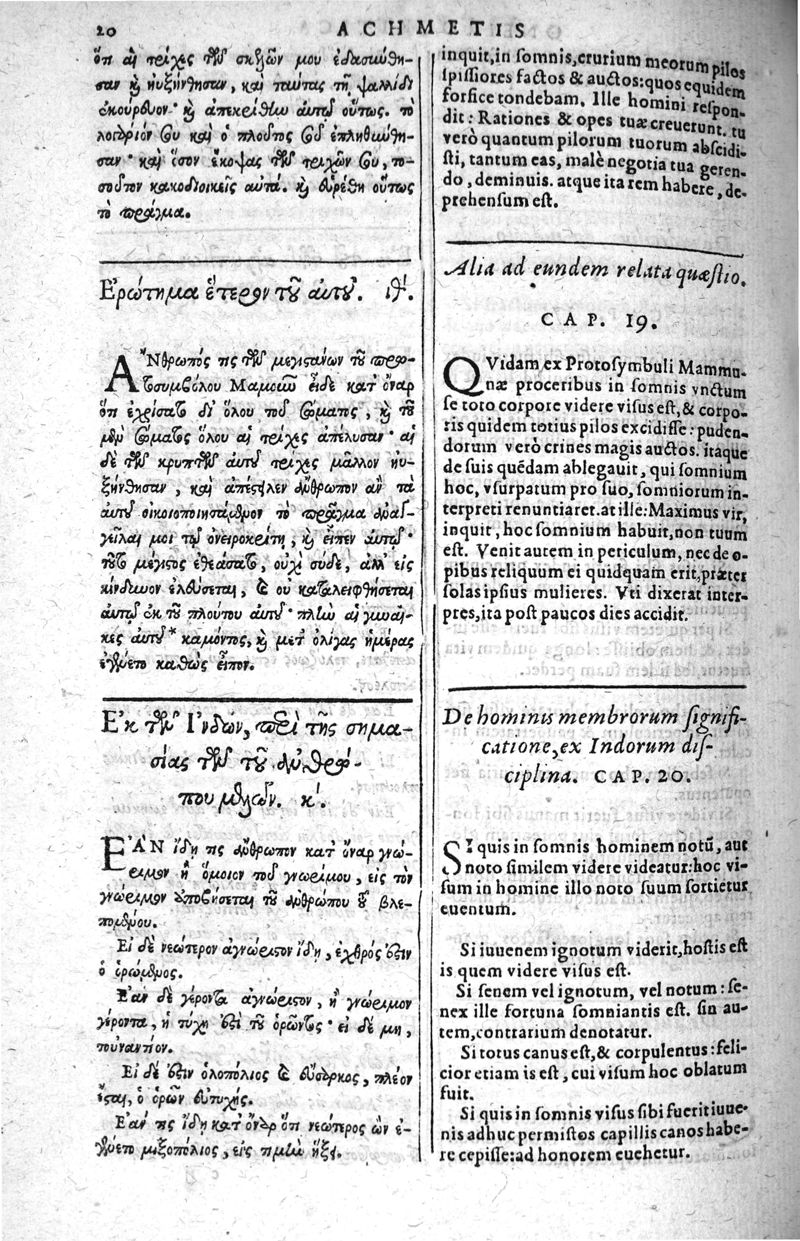 20 ACHMETIS
ὅτι αἱ τρίχες τῶν σκελῶν μου ἐδασώθη-
σαν καὶ ηὐξήνθησαν, καὶ ταύτας τῇ ψαλλίδι
ἐκούρευον· καὶ ἀπεκρίθη αὐτῷ οὕτως. τὸ
λογάριόν σου καὶ ὁ πλοῦτός σου ἐπληθύνθη-
σαν· καὶ ὅσον ἔκοψας τῶν τριχῶν σου, το-
σοῦτον κακοδιοικεῖς αὐτά. καὶ εὑρέθη οὕτως
τὸ πρᾶγμα.
Ἐρώτημα ἕτερον τοῦ αὐτοῦ. ιθʹ.
ἌΝθρωπός τις τῶν μεγιστάνων τοῦ πρω-
τοσυμβόλου Μαμοῦν εἶδε κατ' ὄναρ
ὅτι ἐχρίσατο δι' ὅλου τοῦ σώματος, καὶ τοῦ
μὲν σώματος ὅλου αἱ τρίχες ἀπέλυσαν· αἱ
δὲ τῶν κρυπτῶν αὐτοῦ τρίχες μᾶλλον ηὐ-
ξήνθησαν, καὶ ἀπέστειλεν ἄνθρωπον αὐτοῦ τὰ
αὐτοῦ οἰκειοποιησάμενον τὸ πρᾶγμα ἀναγ-
γεῖλαί μοι τῷ ὀνειροκρίτῃ, καὶ εἶπεν αὐτῷ·
τοῦτο μέγιστος ἐθεάσατο, οὐχὶ σύδε, ἀλλ' εἰς
κίνδυνον ἐλεύσεται, καὶ οὐ καταλειφθήσεται
αὐτῷ ἐκ τοῦ πλούτου αὐτοῦ· πλὴν αἱ γυναῖ-
κες αὐτοῦ* καμόντος, καὶ μετ' ὀλίγας ἡμέρας
ἐγένετο καθὼς εἶπον.
Ἐκ τῶν Ἰνδῶν, περὶ τῆς σημα-
σίας τῶν τοῦ ἀνθρώ-
που μελῶν. κʹ.
ἘΑΝ ἴδῃ τις ἄνθρωπον κατ' ὄναρ γνώ-
ριμον ἢ ὅμοιον τοῦ γνωρίμου, εἰς τὸν
γνώριμον ἀποβήσεται τοῦ ἀνθρώπου τοῦ βλε-
πομένου.
Εἰ δὲ νεώτερον ἀγνώριστον ἴδῃ, ἐχθρός ἐστιν
ὁ ὁρώμενος.
Ἐὰν δὲ γέροντα ἀγνώριστον, ἢ γνώριμον
γέροντα, ἡ τύχη ἐστὶ τοῦ ὁρῶντος· εἰ δὲ μὴ,
τοὐναντίον.
Εἰ δέ ἐστιν ὁλοπόλιος καὶ εὔσαρκος, πλέον
ἔσται, ὁ ὁρῶν εὐτυχής.
Ἐάν τις ἴδῃ κατ' ὄναρ ὅτι νεώτερος ὢν ἐ-
γένετο μιξοπόλιος, εἰς τιμὴν ἥξει.
inquit, in somnis, crurium meorum pilos
spissiores factos & auctos: quos equidem
forfice tondebam. Ille homini respon-
dit: Rationes & opes tuæ creuerunt. tu
verò quantum pilorum tuorum abscidi-
sti, tantum eas, malè negotia tua geren-
do, deminuis. atque ita rem habere, de-
prehensum est.
Alia ad eundem relata quæstio.
CAP. 19.
QVidam ex Protosymbuli Mammu-
næ proceribus in somnis vnctum
se toto corpore videre visus est, & corpo-
ris quidem totius pilos excidisse: puden-
dorum verò crines magis auctos. itaque
de suis quendam ablegauit, qui somnium
hoc, vsurpatum pro suo, somniorum in-
terpreti renuntiaret. at ille: Maximus vir,
inquit, hoc somnium habuit, non tuum
est. Venit autem in periculum, nec de o-
pibus reliquum ei quidquam erit, præter
solas ipsius mulieres. Vti dixerat inter-
pres, ita post paucos dies accidit.
De hominis membrorum signifi-
catione, ex Indorum dis-
ciplina. CAP. 20.
SI quis in somnis hominem notũ, aut
noto similem videre videatur: hoc vi-
sum in homine illo noto suum sortietur
euentum.
Si iuuenem ignotum viderit, hostis est
is quem videre visus est.
Si senem vel ignotum, vel notum: se-
nex ille fortuna somniantis est. sin au-
tem, contrarium denotatur.
Si totus canus est, & corpulentus: feli-
cior etiam is est, cui visum hoc oblatum
fuit.
Si quis in somnis visus sibi fuerit iuue-
nis adhuc permistos capillis canos habe-
re cepisse: ad honorem euehetur.